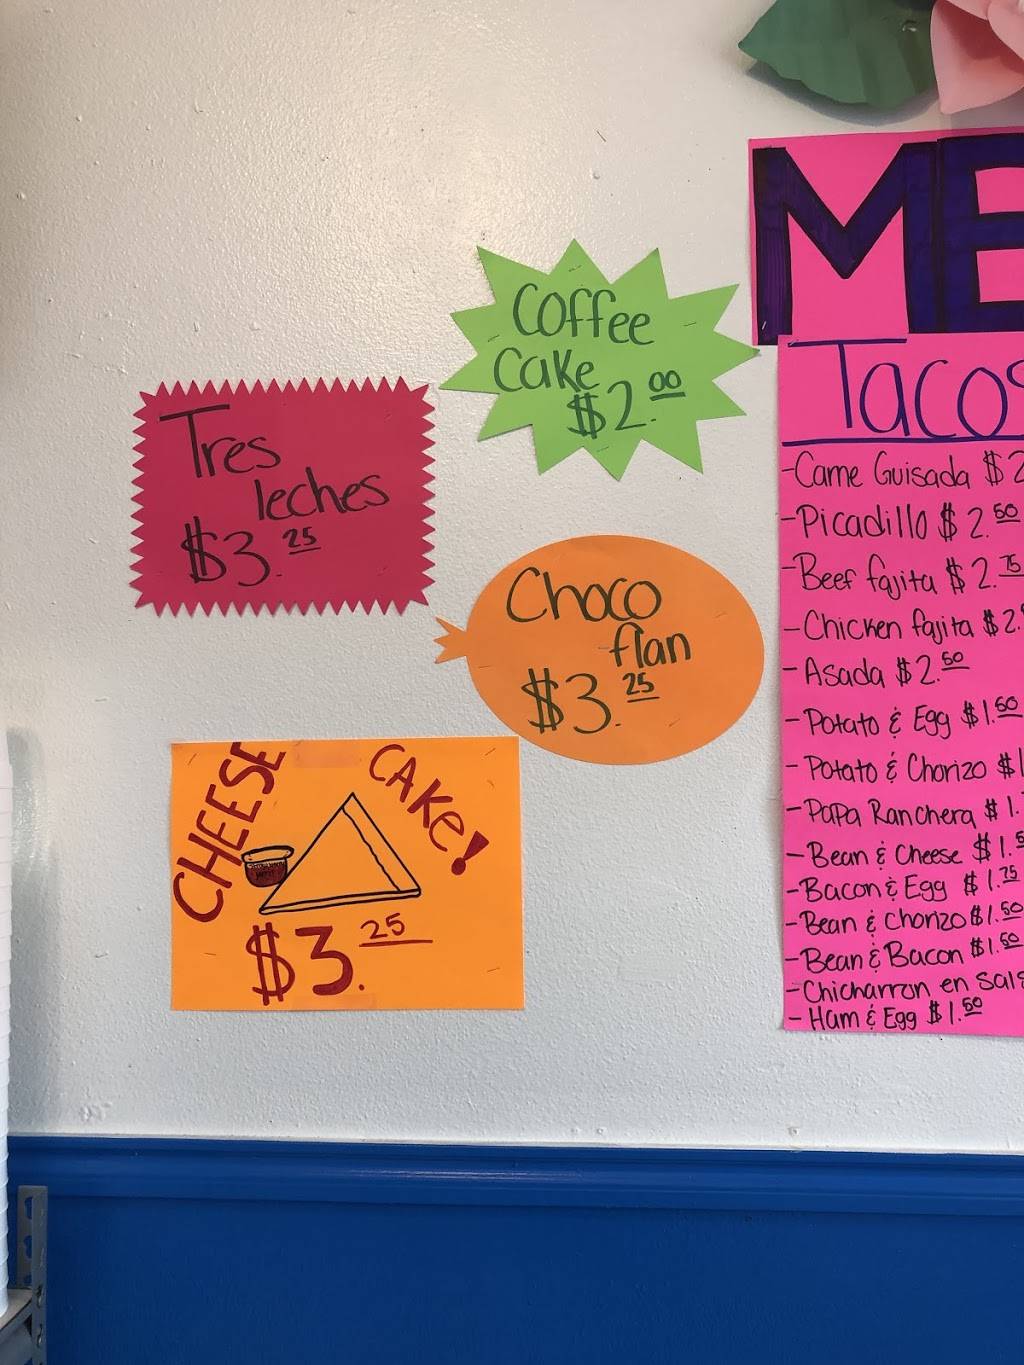 Coffee
Cake
$2.00
Tres
leches
$3.25
Choco
flan
$3.25
CHEESE
CAKE!
$3.25
ME
Tacos
-Carne Guisada $2
-Picadillo $2.50
-Beef fajita $2.75
-Chicken fajita $2.
-Asada $2.50
-Potato & Egg $1.50
-Potato & Chorizo $1
-Papa Ranchera $1.
-Bean & Cheese $1.5
-Bacon & Egg $1.75
-Bean & Chorizo $1.50
-Bean & Bacon $1.50
-Chicharron en Sals
-Ham & Egg $1.50